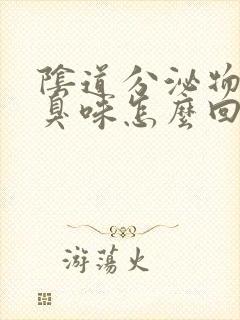 陰道分泌物
臭味怎麼回
游蕩火